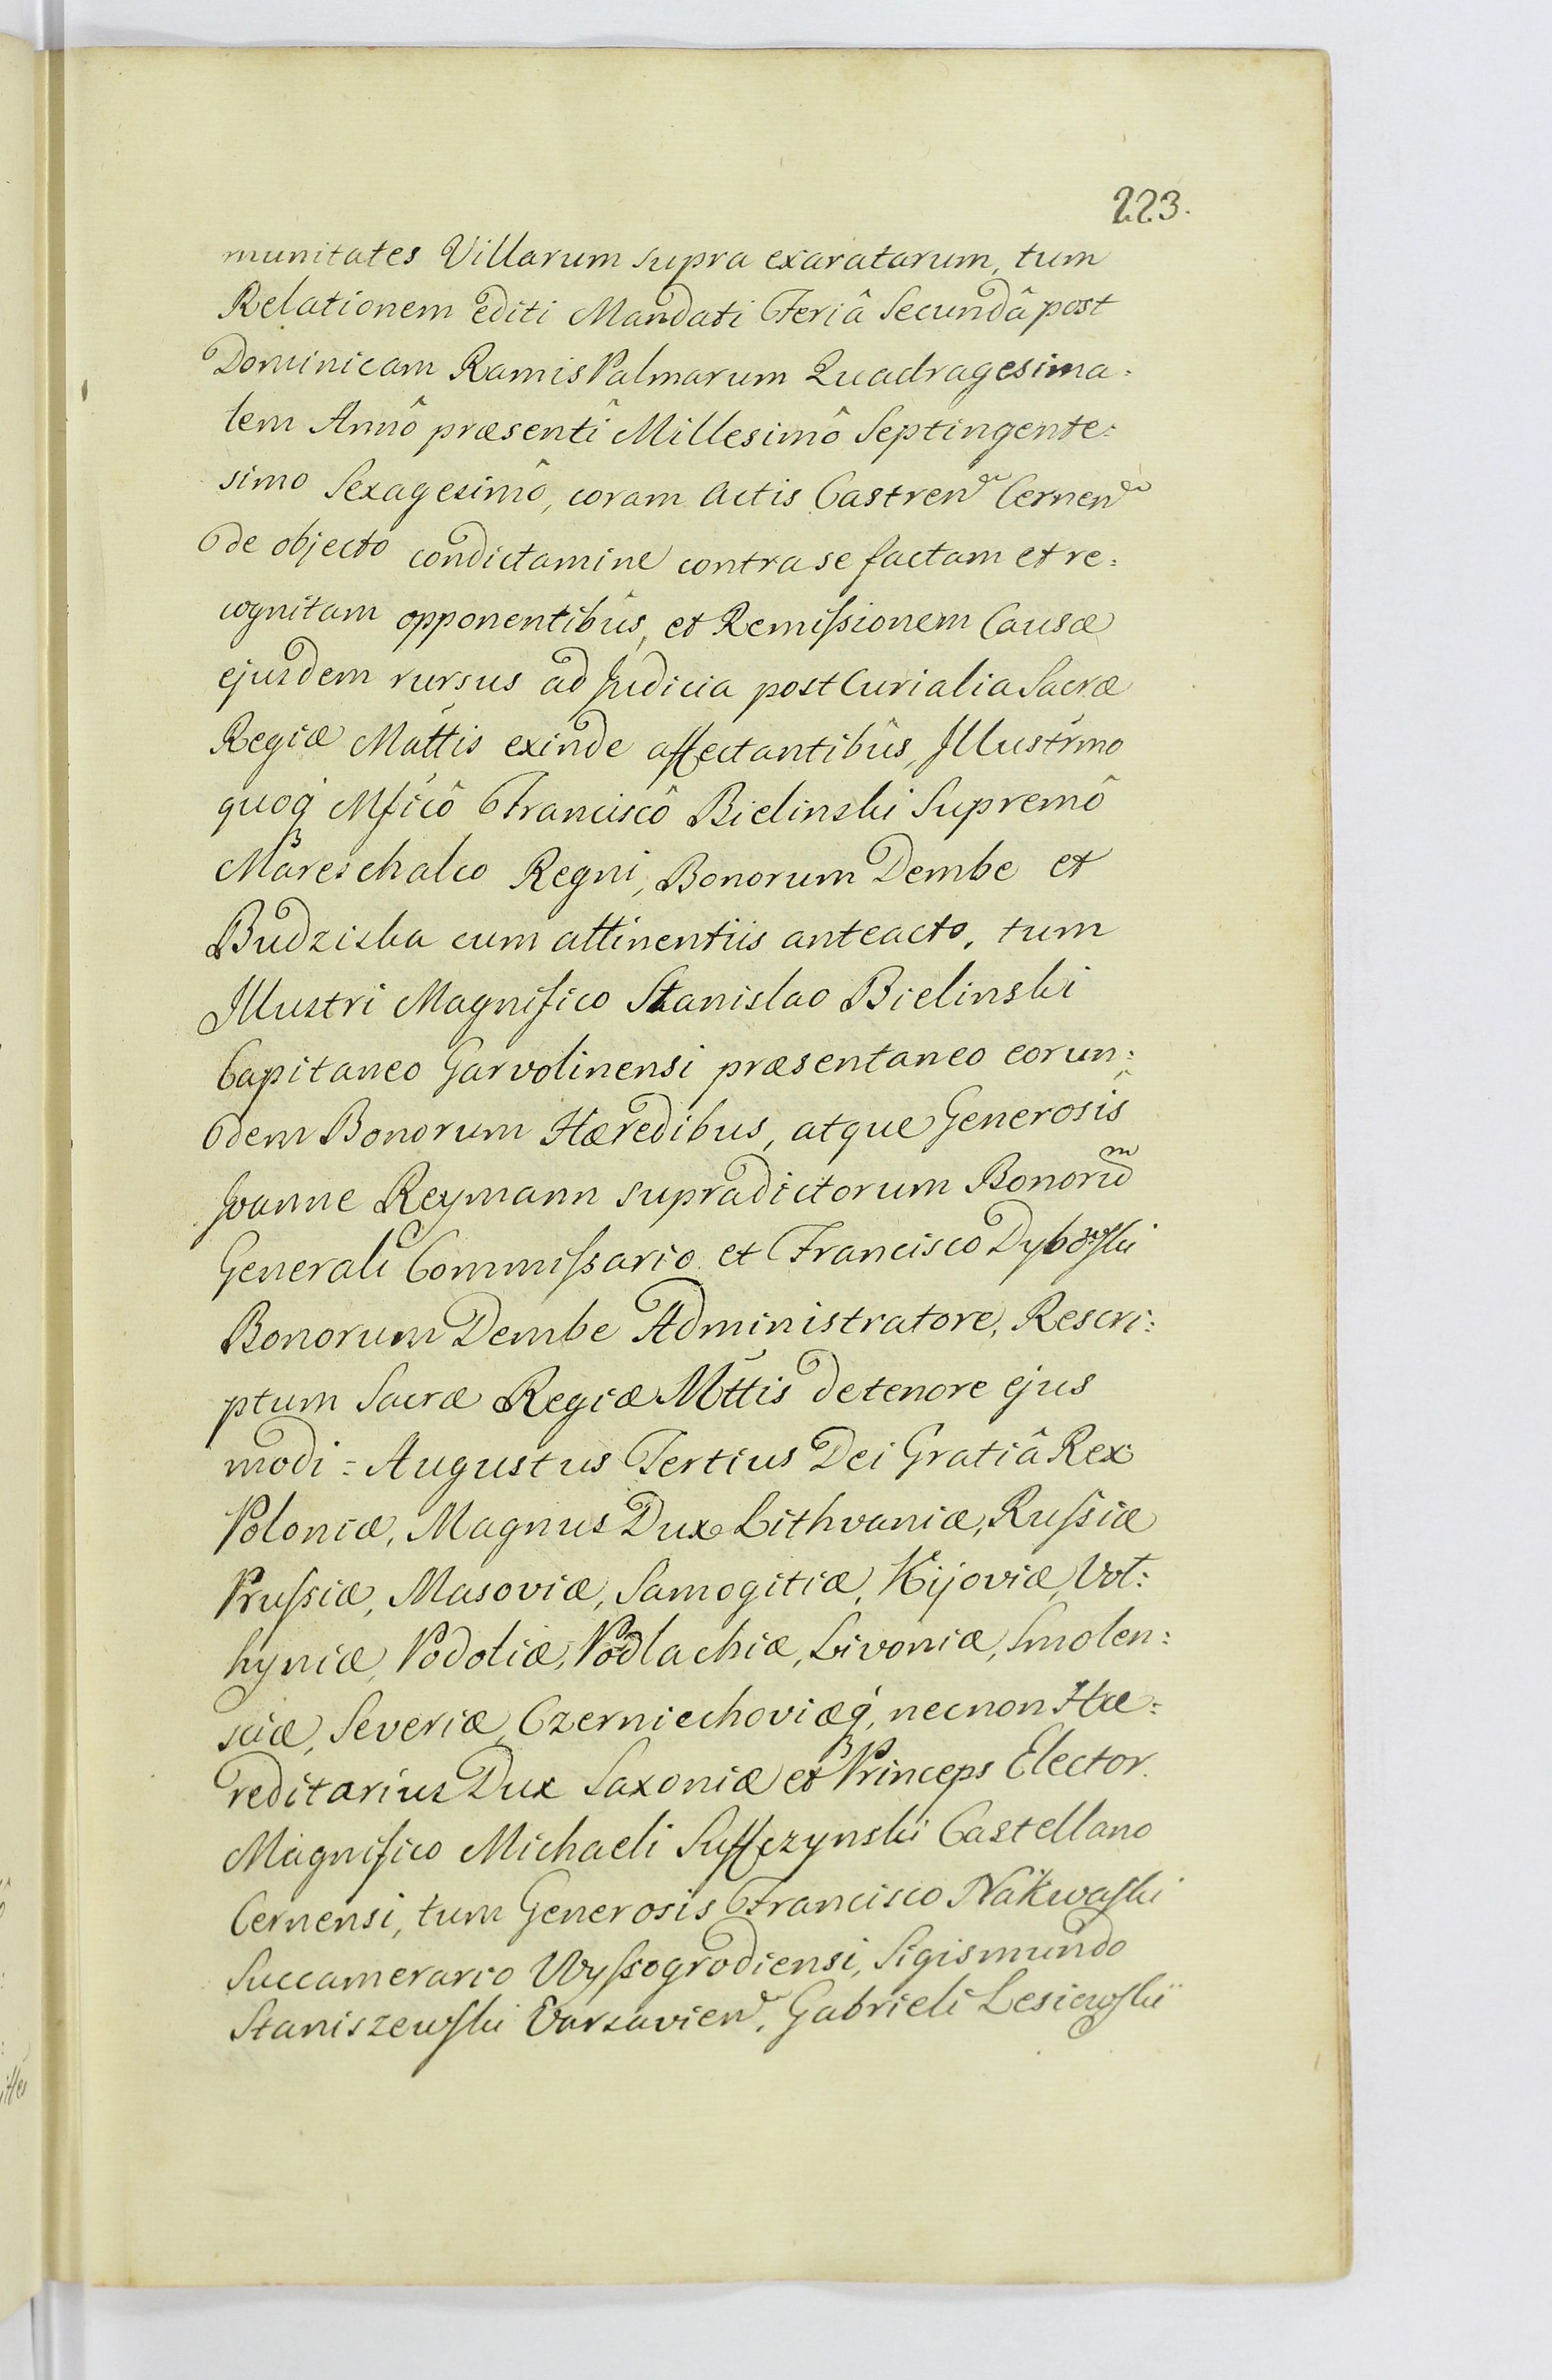 223.
munitates Villarum supra exaratarum, tum
Relationem editi Mandati Feriâ Secundâ post
Dominicam Ramis Palmarum Quadragesima:
lem Annô præsentî Millesimô Septingente:
simo Sexagesimô, coram Actis Castren Cernen
de objecto condictamine contra se factam et re:
cognitam opponentibûs, et Remißionem Causæ
ejusdem rursus ad Judicia post Curialia Sacræ
Regiæ Mattis exinde affectantibûs, Illustrmo
quoq Mficô Franciscô Bielinski Supremô
Mareschalco Regni, Bonorum Dembe et
Budziska cum attinentiis anteacto, tum
Illustri Magnifico Stanislao Bielinski
Capitaneo Garvolinensi præsentaneo eorun:
dem Bonorum Hæredibus, atque Generosis
Joanne Reymann supradictorum Bonorum
Generali Commißario et Francisco Dybowski
Bonorum Dembe Administratore, Rescri:
ptum Sacræ Regiæ Mttis de tenore ejus
modi = Augustus Tertius Dei Gratiâ Rex
Poloniæ, Magnus Dux Lithvaniæ, Rußiæ
Prußiæ, Masoviæ, Samogitiæ, Kijoviæ, Vol:
hyniæ, Podoliæ, Podlachiæ, Livoniæ, Smolen:
sciæ, Severiæ, Czerniechoviæq, necnon Hæ:
reditarius Dux Saxoniæ et Princeps Elector.
Magnifico Michaeli Suffczynski Castellano
Cernensi, tum Generosis Francisco Nakwaski
Succamerario Wyßogrodiensi, Sigismundo
Staniszewski Varsavien, Gabrieli Lesiewski